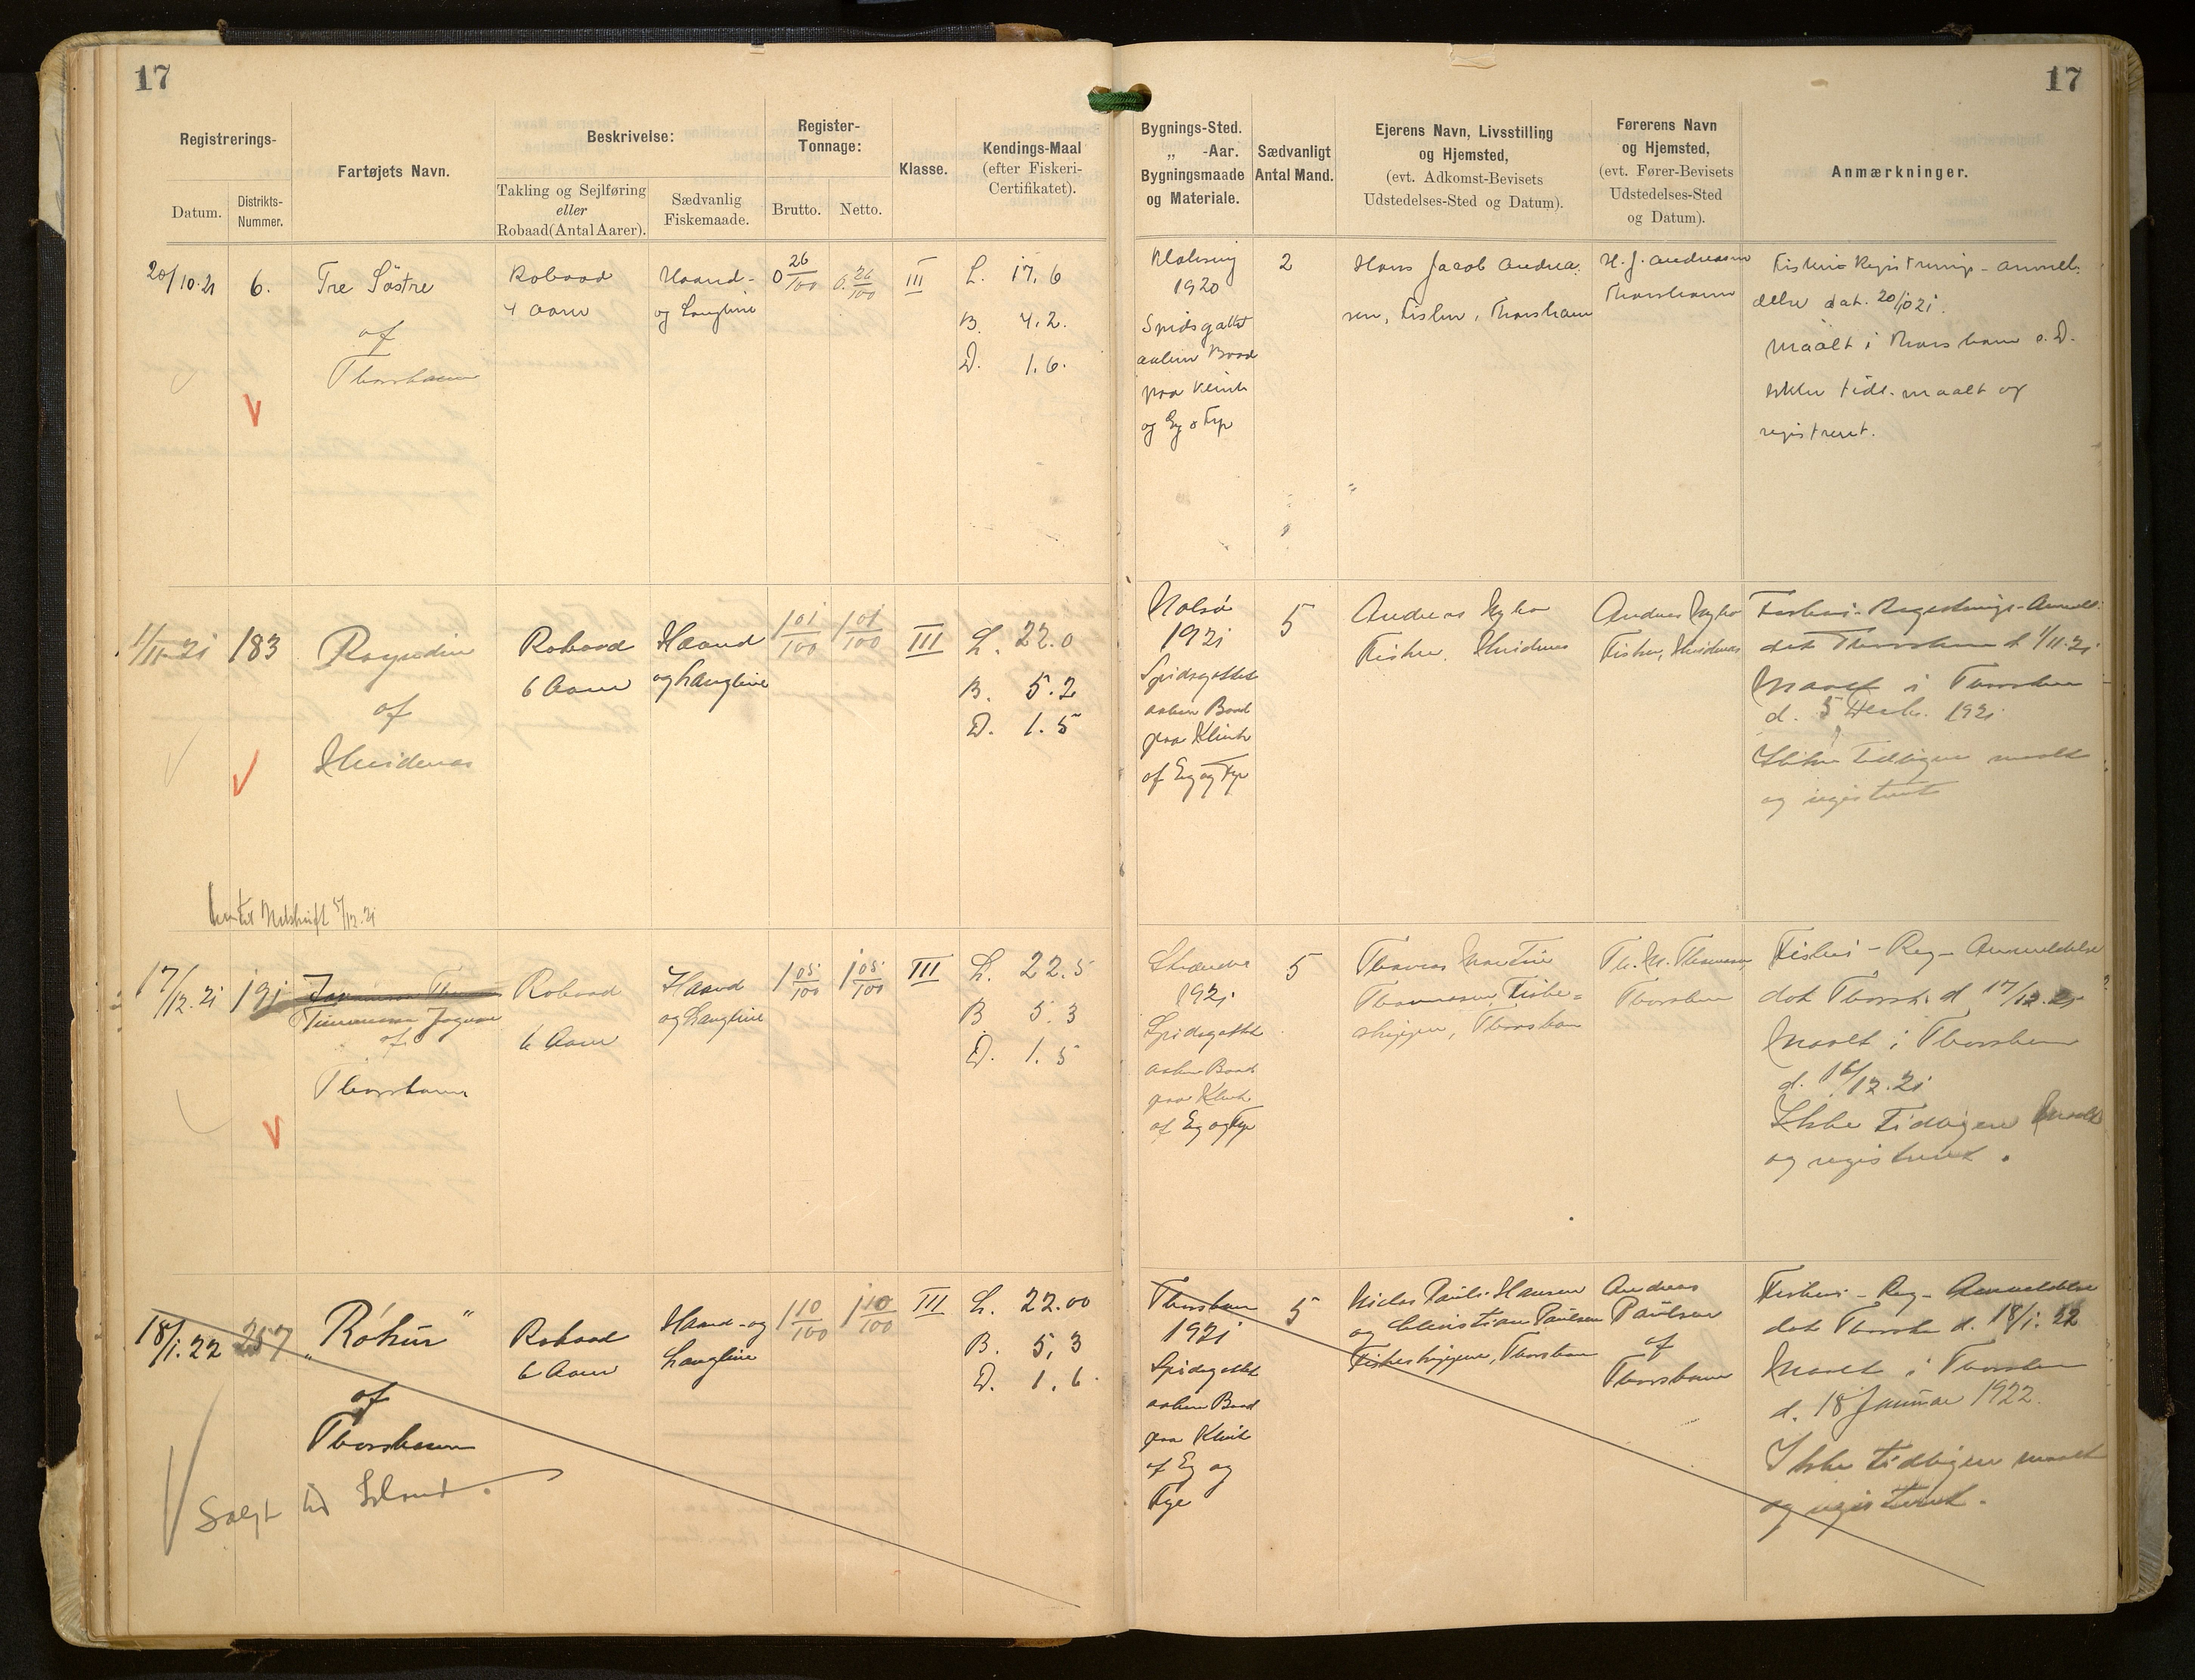 17
17
Registrerings-
Datum.
Distrikts-
Nummer.
Fartøjets Navn.
Beskrivelse:
Takling og Sejlføring
eller
Robaad (Antal Aarer).
Sædvanlig
Fiskemaade.
Register-
Tonnage:
Brutto.
Netto.
Klasse.
Kendings-Maal
(efter Fiskeri-
Certifikatet).
Bygnings-Sted.
„ -Aar.
Bygningsmaade
og Materiale.
Sædvanligt
Antal Mand.
Ejerens Navn, Livsstilling
og Hjemsted,
(evt. Adkomst-Bevisets
Udstedelses-Sted og Datum).
Førerens Navn
og Hjemsted,
(evt. Fører-Bevisets
Udstedelses-Sted
og Datum).
Anmærkninger.
20/10.21
6.
Tre Söstre
af
Thorshavn
Robaad
4 Aarer
Haand-
og Langline
0 26/100
0. 26/100
III
L. 17,6
B. 4,2.
D. 1,6.
1920
Spidsgattet
aaben Baad
paa Klink
og Eg o Fyr
2
Hans Jacob Andrea-
sen, Fisker, Thorshavn
H. J. Andreasen
Thorshavn
Fiskeri Registrerings-anmel-
delse dat. 20/10 21.
Maalt i Thorshavn s. D.
Ikke tidl. maalt og
registreret.
1/11-21
183
af
Hvidenæs
Robaad
6 Aarer
Haand
og Langline
1 01/100
1 01/100
III
L. 22.0
B. 5.2
D. 1.5
Nolsø
1921
Spidsgattet
aaben Baad
paa Klink
af Eg og Fyr
5
Andreas Nybo
Fisker, Hvidenæs
Andreas Nybo
Fisker, Hvidenæs
Fiskeri-Registrerings-Anmeld.
dat Thorshavn d. 1/11-21
Maalt i Thorshavn
d. 5 Decbr. 1921
Ikke tidligere maalt
og registreret
5/12.21
17/12.21
191
af
Thorshavn
Robaad
6 Aarer
Haand
og Langline
1 05/100
1 05/100
III
L. 22.5
B 5.3
D. 1.5
1921
Spidsgattet
aaben Baad
paa Klink
af Eg og Fyr
5
Thomas Martin
Thomassen, Fiske=
skipper, Thorshavn
Th. M. Thomassen,
Thorshavn
Fiskeri-Reg-Anmeldelse
dat Thorsh. d 17/12.21
Maalt i Thorshavn
d. 16/12.21
Ikke tidligere maalt
og registreret.
18/1.22
257
„Rókur“
af
Thorshavn
Solgt til Island.
Robaad
6 Aarer
Haand-og
Langline
1 10/100
1 10/100
III
L. 22.00
B. 5,3
D. 1,6.
Thorshavn
1921
Spidsgattet
aaben Baad
paa Klink
af Eg og
Fyr
5
Niclas Pauli Hansen
og Christian Paulsen
Fiskeskippere, Thorshavn
Andreas
Paulsen
af
Thorshavn
Fiskeri-Reg-Anmeldelse
dat Thorshavn d. 18/1.22
Maalt i Thorshavn
d. 18 Januar 1922.
Ikke tidligere maalt
og registreret.